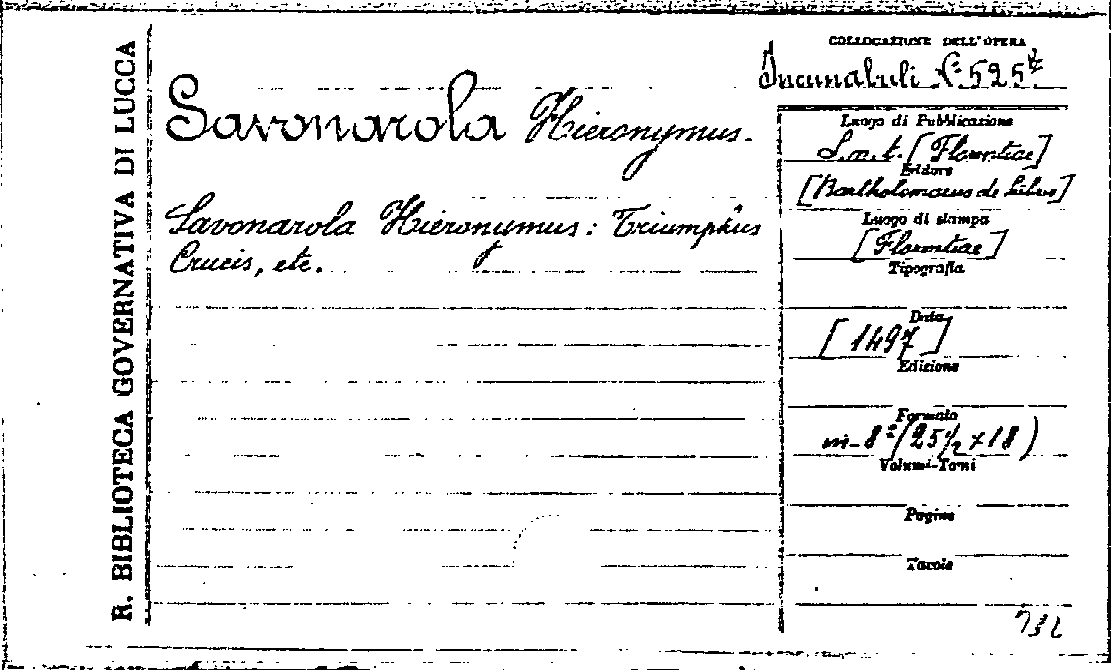 R. BIBLIOTECA GOVERNATIVA DI LUCCA
Savonarola Hieronymus.
Savonarola Hieronymus: Triumphus
Crucis, etc.
COLLOCAZIONE DELL'OPERA
Incunabuli N.º 525
Luogo di Pubblicazione
S.n.t. [Florentiae]
Editore
[Bartholomaeus de Libris]
Luogo di stampa
[Florentiae]
Tipografia
Data
[1497]
Edizione
Formato
in-8º (25 1/2 x 18)
Volumi-Tomi
Pagine
Tavole
732